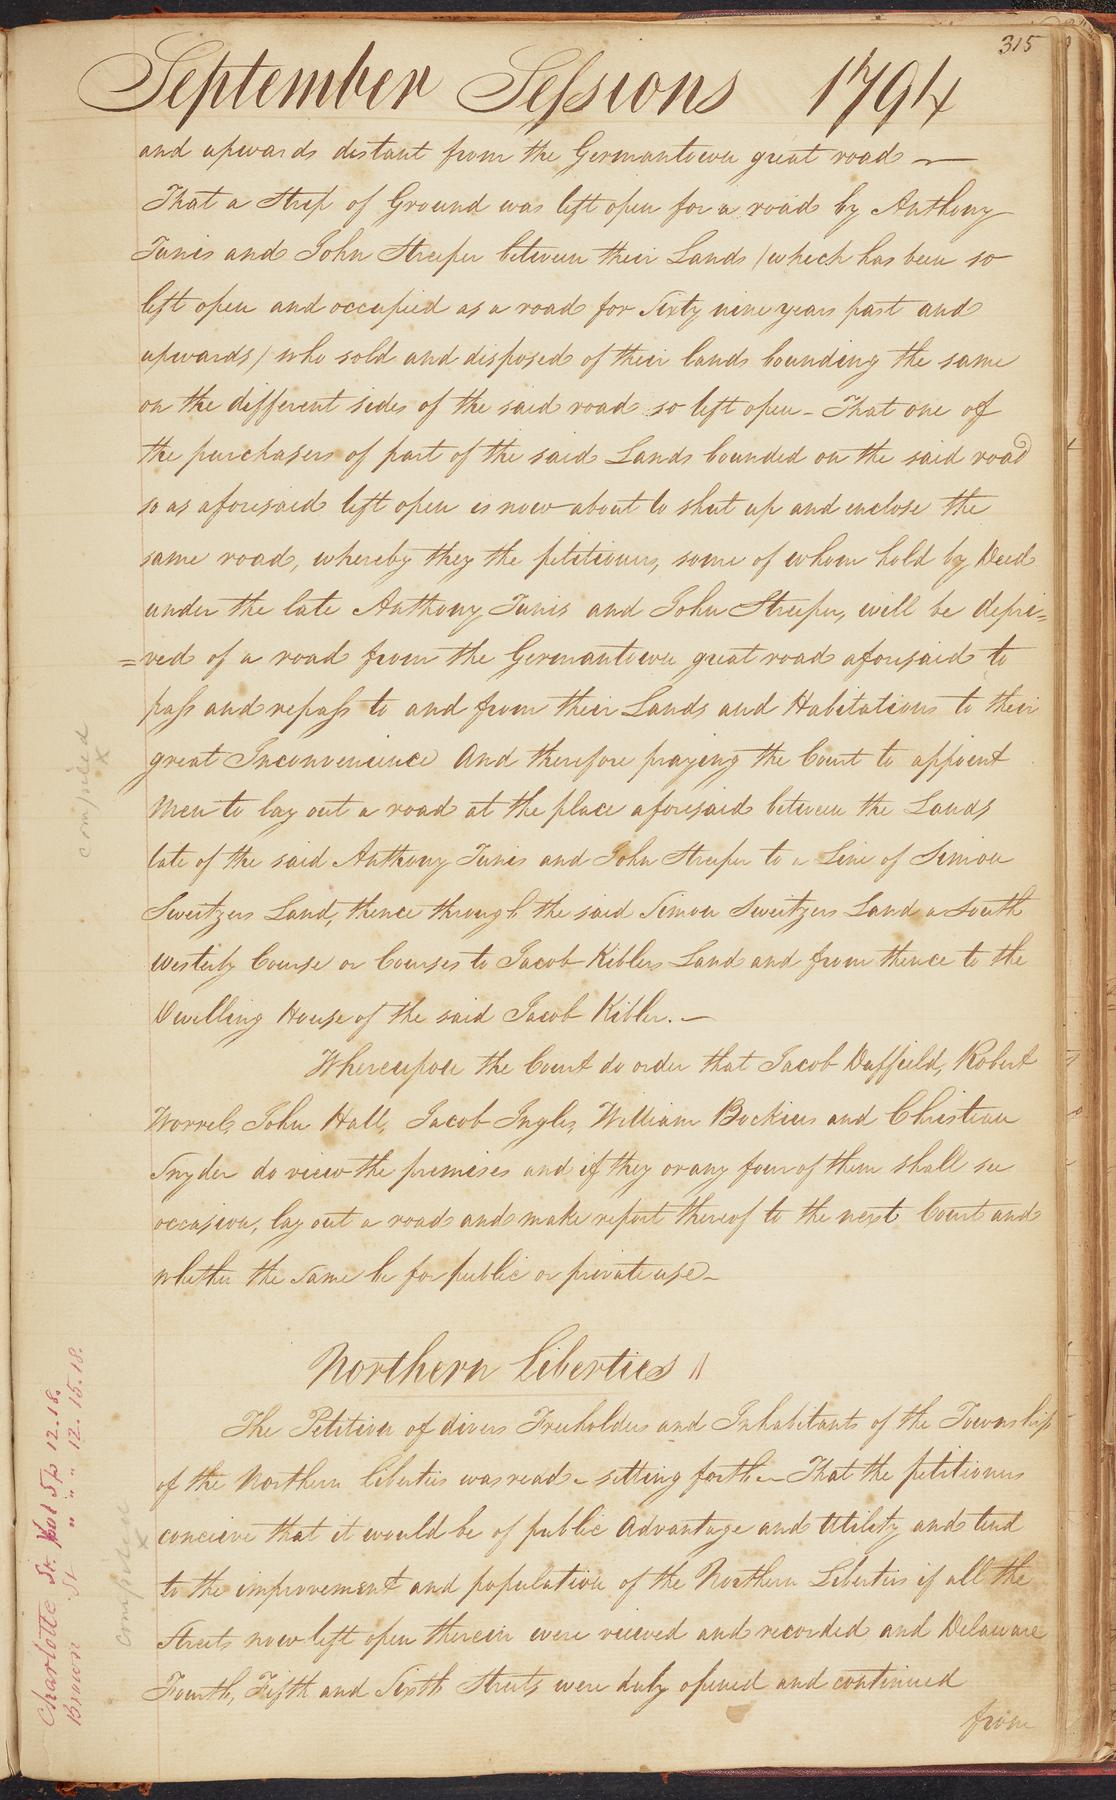 315
September Sessions 1794
and upwards distant from the Germantown great road —
That a Strip of Ground was left open for a road by Anthony
Tunis and John Streeper between their Lands (which has been so
left open and occupied as a road for Sixty nine years past and
upwards) who sold and disposed of their lands bounding the same
on the different sides of the said road so left open - That one of
the purchasers of part of the said Lands bounded on the said road
so as aforesaid left open is now about to shut up and enclose the
same road, whereby they the petitioners, some of whom hold by Deed
under the late Anthony Tunis and John Streeper, will be depri=
=ved of a road from the Germantown great road aforesaid to
pass and repass to and from their Lands and Habitations to their
great Inconvenience And therefore praying the Court to appoint
Men to lay out a road at the place aforesaid between the Lands
late of the said Anthony Tunis and John Streeper to a Line of Simon
Sweitzers Land, thence through the said Simon Sweitzers Land a South
westerly Course or Courses to Jacob Kiblers Land and from thence to the
Dwelling House of the said Jacob Kibler. —
Whereupon the Court do order that Jacob Duffield, Robert
Worrel, John Hall, Jacob Ingles, William Bockius and Christian
Snyder do view the premises and if they or any four of them shall see
occasion, lay out a road and make report thereof to the next Court and
whether the same be for public or private use -
Northern Liberties //
The Petition of divers Freeholders and Inhabitants of the Township
of the Northern Liberties was read - setting forth - That the petitioners
conceive that it would be of public Advantage and Utility and tend
to the improvement and population of the Northern Liberties if all the
Streets now left open therein were viewed and recorded and Delaware
Fourth, Fifth and Sixth Streets were duly opened and continued
from
compiled
x
compiled
x
Charlotte St. 12.18.
Brown St " " " 12.15.18.